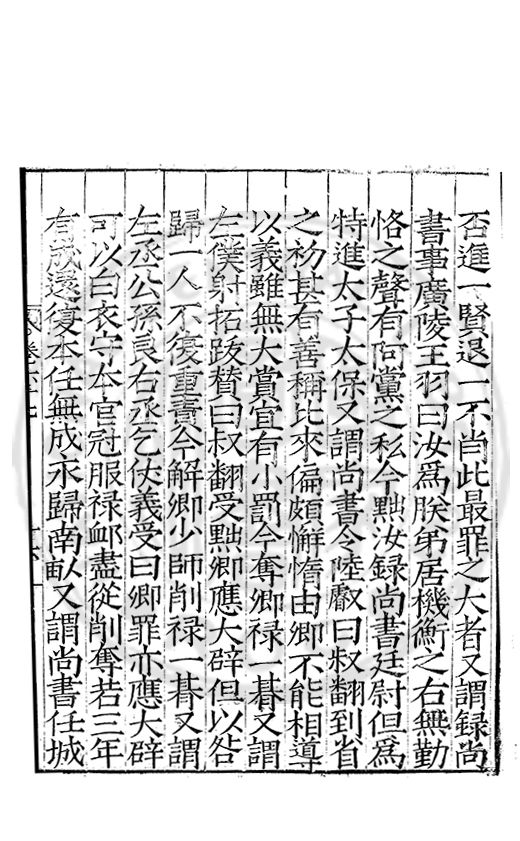 否進一賢退一不肖此最罪之大者又謂録尚
書事廣陵王羽曰汝爲朕弟居機衡之右無勤
恪之聲有阿黨之私今黜汝録尚書廷尉但爲
特進太子太保又謂尚書令陸叡曰叔翻到省
之初甚有善稱比來偏頗懈怠由卿不能相導
以義雖無大賞宜有小罰今奪卿禄一朞又謂
左僕射拓跋賛曰叔翻受黜卿應大辟但以咎
歸一人不復重責今解卿少師削禄一朞又謂
左丞公孫良右丞乞伏義受曰卿罪亦應大辟
可以白衣守本官冠服禄䘏盡從削奪若三年
有成還復本任無成永歸南畝又謂尚書任城